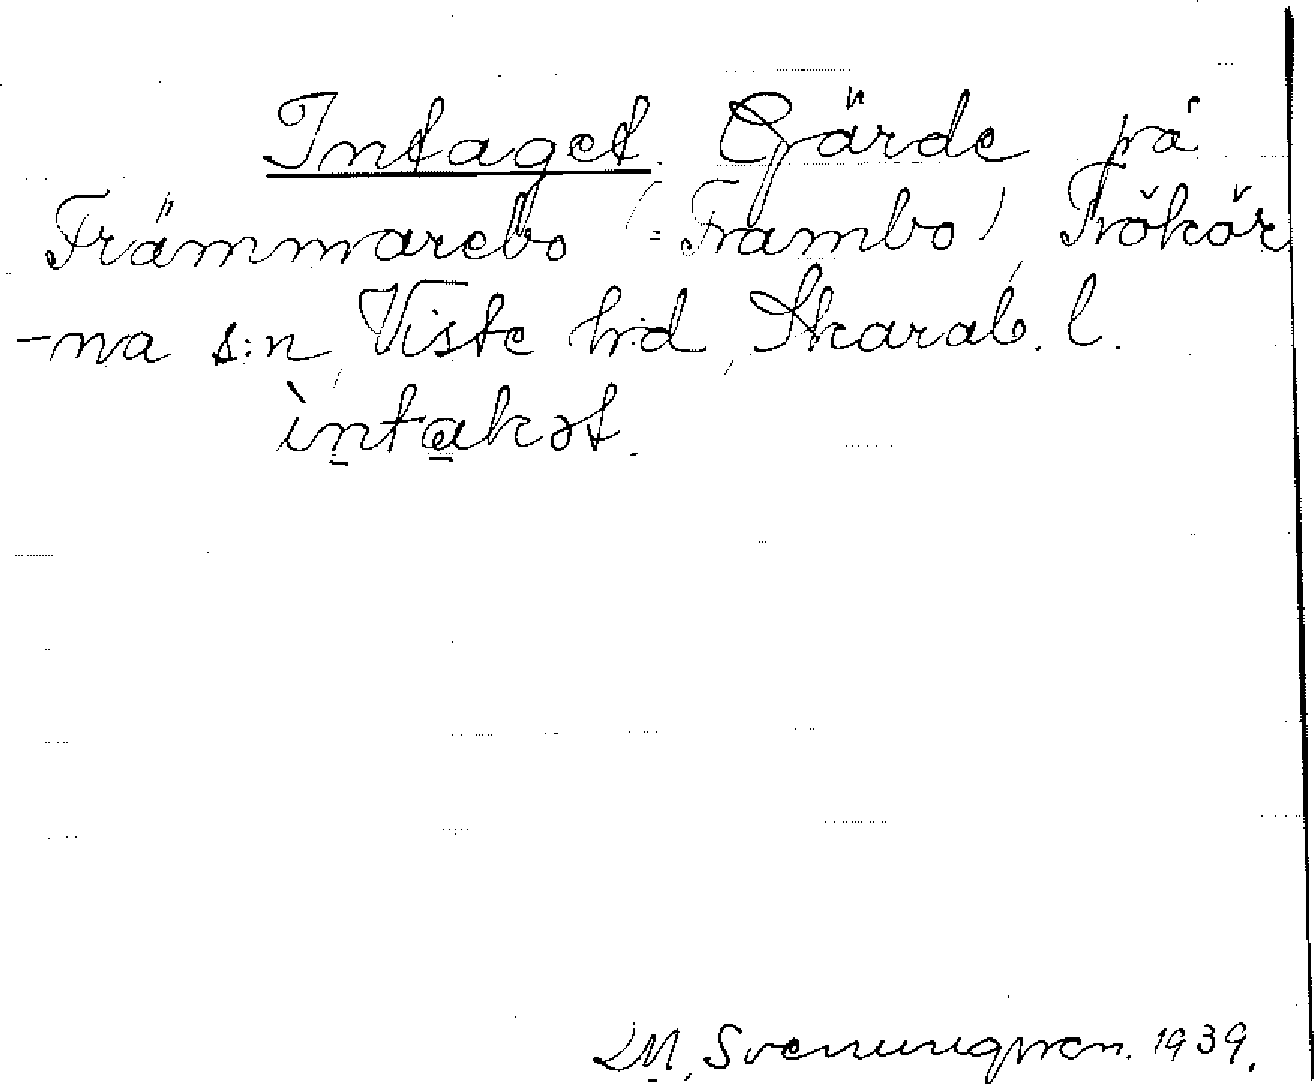 Intaget. Gärde på
Främmarebo (= Frambo), Trökör
-na s:n, Viste h:d, Skarab. l.
ìntakət.
D.M. Svenungsson. 1939.